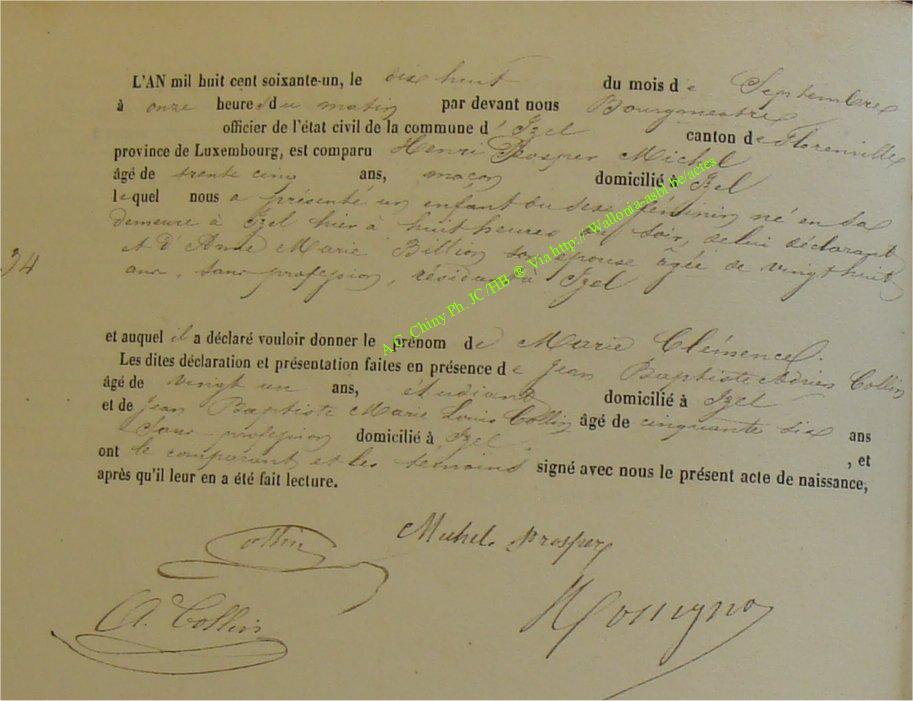 L'AN mil huit cent soixante-un, le dix huit du mois de Septembre
à onze heures du matin par devant nous Bourgmestre
officier de l'état civil de la commune d'Izel canton de Florenville
province de Luxembourg, est comparu Henri Prosper Michel
âgé de trente cinq ans, maçon domicilié à Izel
lequel nous a présenté un enfant du sexe féminin né en sa
demeure à Izel hier à huit heures du soir, de lui déclarant
34 et d'Anne Marie Billion son épouse agée de vingt huit
ans, sans profession, résidant à Izel
et auquel il a déclaré vouloir donner le prénom de Marie Clémence.
Les dites déclaration et présentation faites en présence de Jean Baptiste Adrien Collin
âgé de vingt un ans, étudiant domicilié à Izel
et de Jean Baptiste Marie Louis Collin âgé de cinquante six ans
Sans profession domicilié à Izel, et
ont le comparant et les témoins signé avec nous le présent acte de naissance,
après qu'il leur en a été fait lecture.
Collin Michel Prosper
A. Collin
A.C. Chiny Ph. JC /HB @ Via http://Wallonia-asbl.be/actes